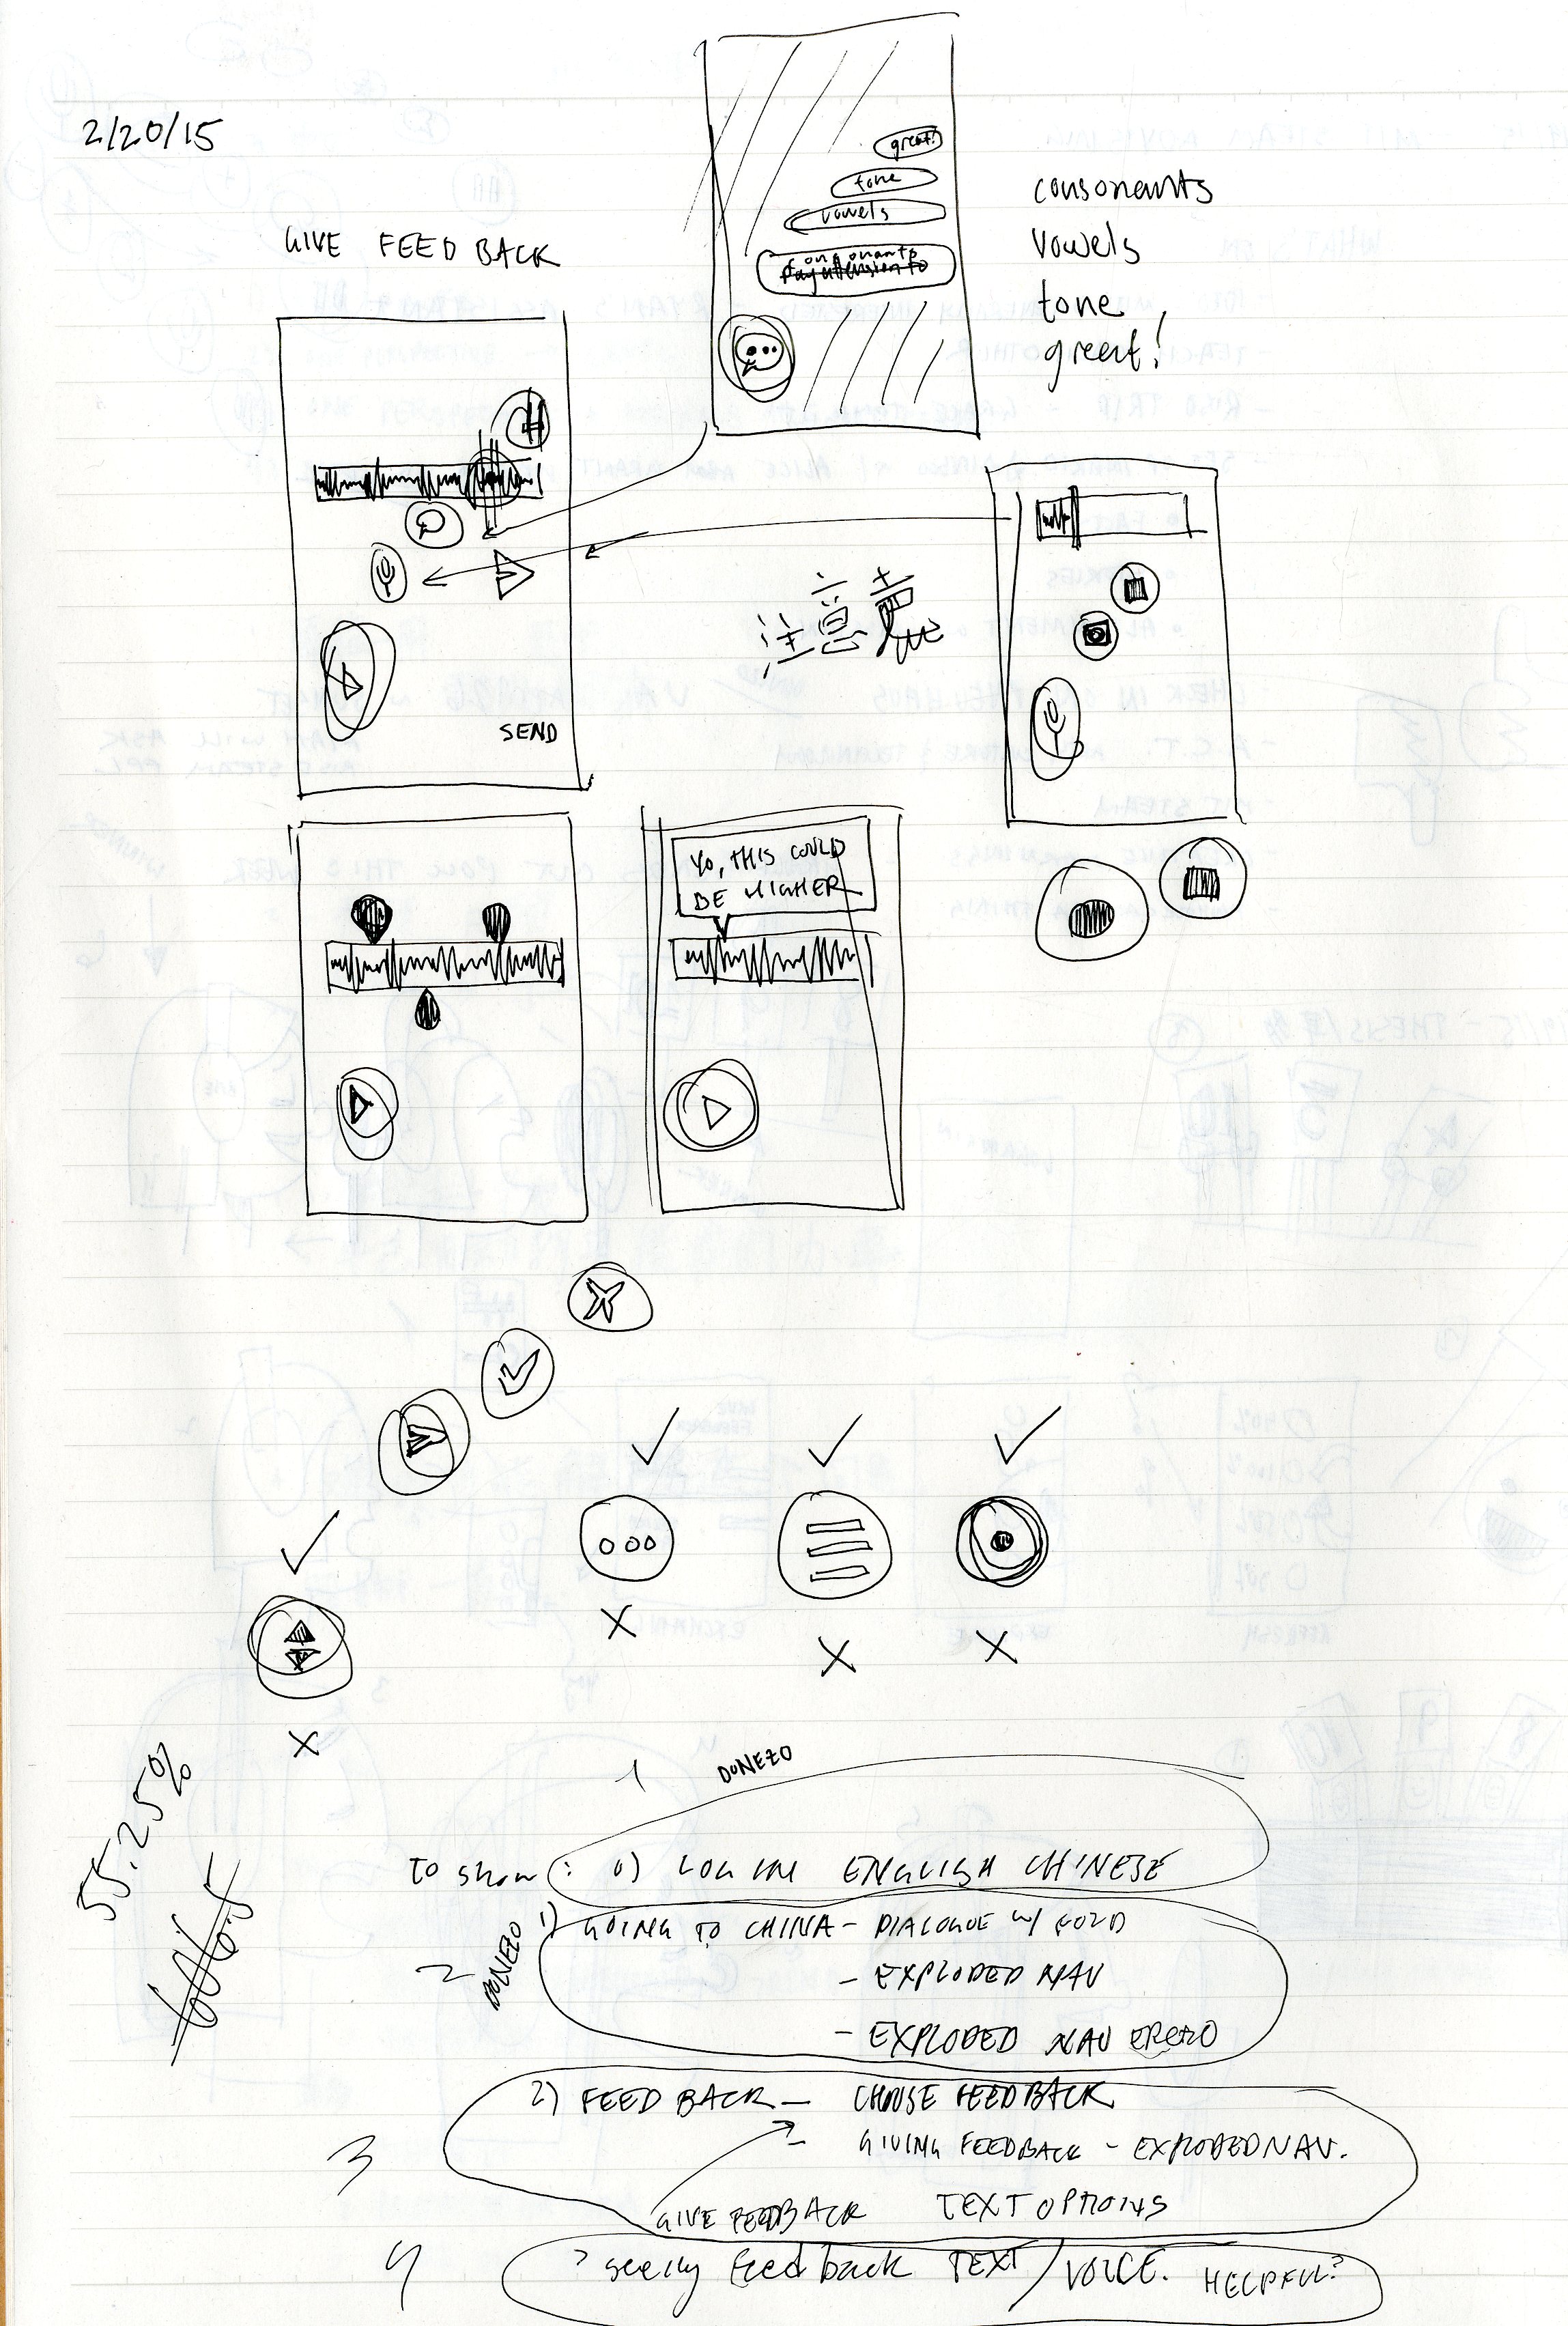 2/20/15
GIVE FEEDBACK
great!
tone
vowels
consonants
pay attention to
consonants
vowels
tone
great!
注意
SEND
YO, THIS COULD
BE HIGHER
55.25%
1 DONEZO
to show: 0) LOG IN ENGLISH CHINESE
2 DONEZO 1) GOING TO CHINA - DIALOGUE W/
- EXPLODED NAV
- EXPLODED NAV
3 2) FEEDBACK - CHOOSE FEEDBACK
- GIVING FEEDBACK - EXPLODED NAV.
GIVE FEEDBACK TEXT OPTIONS
4 ? seeing feedback TEXT/VOICE. HELPFUL?